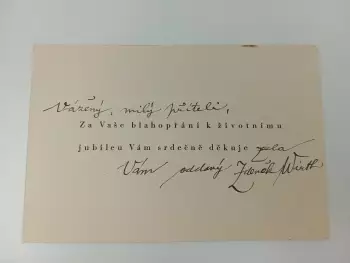 Vážený, milý příteli,
Za Vaše blahopřání k životnímu
jubileu Vám srdečně děkuje zcela
Vám oddaný Zdeněk Wirth